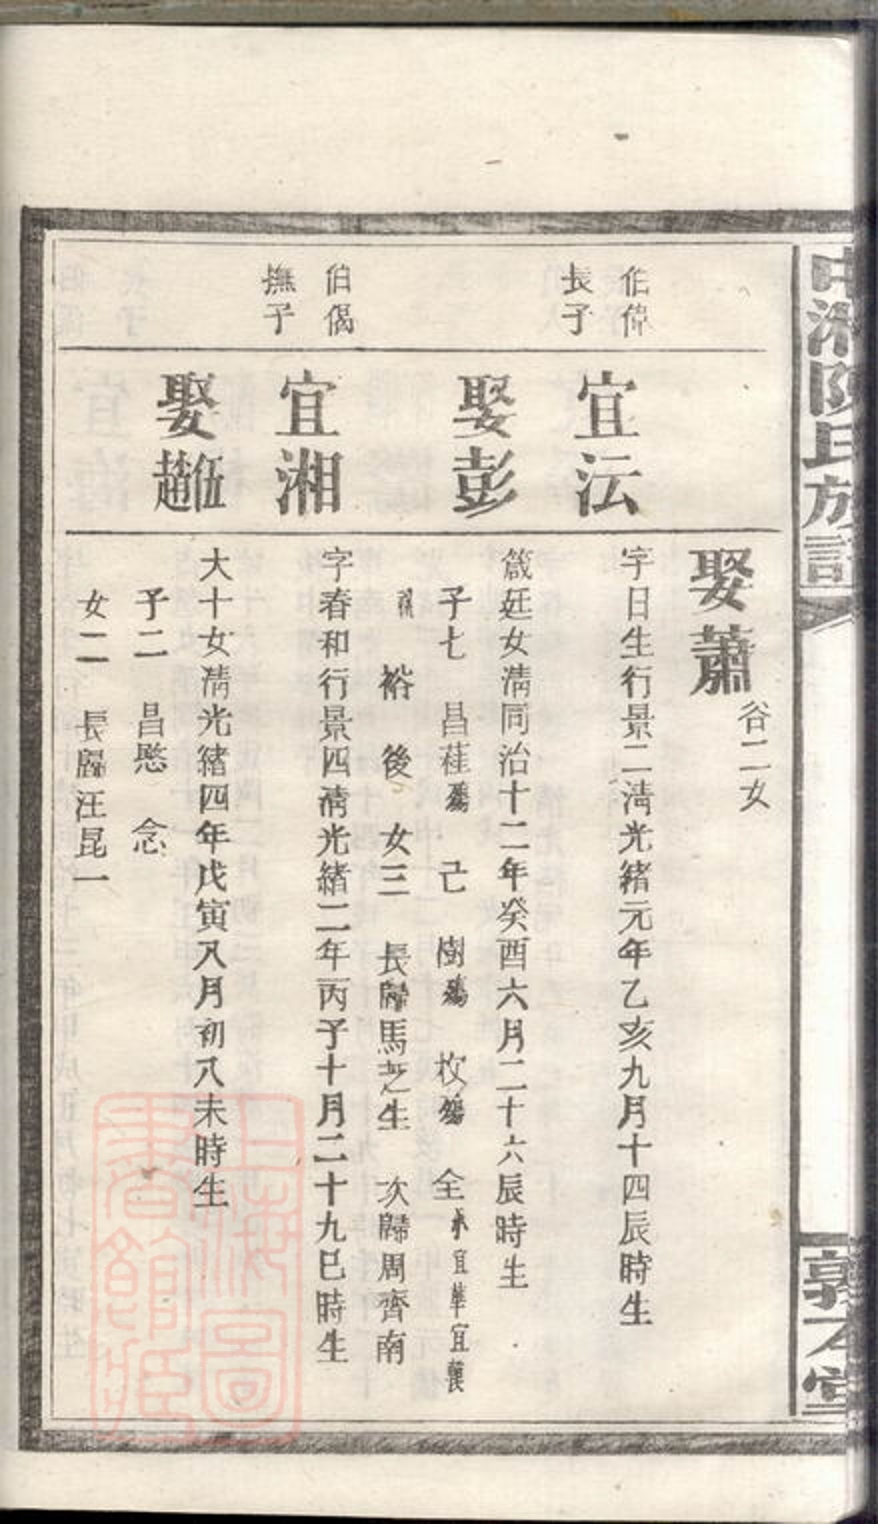 中湘陳氏族譜
敦本堂
娶蕭
谷二女
伯偉
長子
宜沅
字日生行景二清光緒元年乙亥九月十四辰時生
娶彭
箴廷女清同治十二年癸酉六月二十六辰時生
子七 昌蓕殤 己 樹殤 枚殤 全承宜華宜
裕 後 女三 長歸馬芝生 次歸周齊南
伯偈
撫子
宜湘
字春和行景四清光緒二年丙子十月二十九巳時生
娶伍趙
大十女清光緒四年戊寅八月初八未時生
子二 昌愍 念
女二 長歸汪昆一
上海圖書館藏